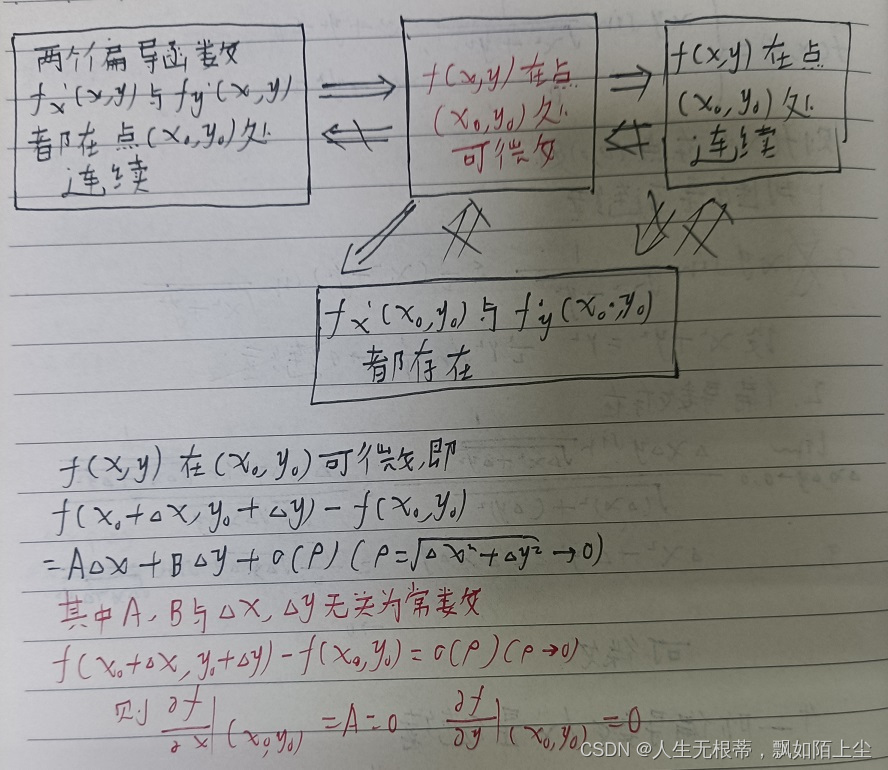 两个偏导函数
fx'(x,y)与fy'(x,y)
都在点(x₀,y₀)处
连续
f(x,y)在点
(x₀,y₀)处
可微
f(x,y)在点
(x₀,y₀)处
连续
fx'(x₀,y₀)与fy'(x₀,y₀)
都存在
f(x,y)在(x₀,y₀)可微,即
f(x₀+△x,y₀+△y)-f(x₀,y₀)
=A△x+B△y+o(ρ)(ρ=√(△x²+△y²)→0)
其中A、B与△x,△y无关为常数
f(x₀+△x,y₀+△y)-f(x₀,y₀)=o(ρ)(ρ→0)
则 ∂f/∂x|(x₀,y₀)=A=0 ∂f/∂y|(x₀,y₀)=0
CSDN @人生无根蒂，飘如陌上尘